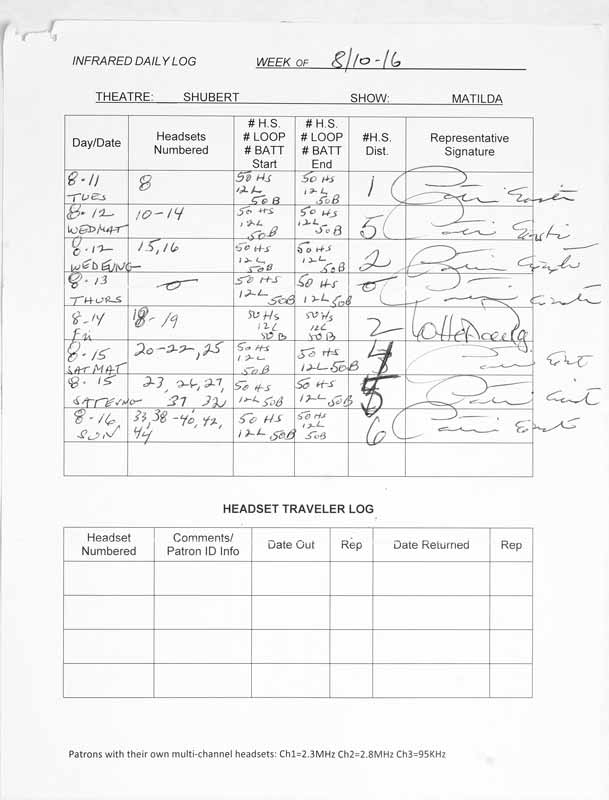 INFRARED DAILY LOG WEEK OF 8/10-16
THEATRE: SHUBERT SHOW: MATILDA
Day/Date
Headsets
Numbered
# H.S.
# LOOP
# BATT
Start
# H.S.
# LOOP
# BATT
End
#H.S.
Dist.
Representative
Signature
8-11
TUES
8
50 HS
12L
50B
50 HS
12L
50B
1
8-12
WEDMAT
10-14
50 HS
12L
50B
50 HS
12L
50B
5
8-12
WEDEVNG
15,16
50 HS
12L
50B
50 HS
12L
50B
2
8-13
THURS
0
50 HS
12L 50B
50 HS
12L 50B
0
8-14
Fri
18-19
50 HS
12L
50B
50 HS
12L
50B
2
8-15
SATMAT
20-22, 25
50 HS
12L
50B
50 HS
12L 50B
8-15
SATEVNG
23, 26, 27,
31 32
50 HS
12L 50B
50 HS
12L 50B
5
8-16
SUN
33, 38-40, 42,
44
50 HS
12L 50B
50 HS
12L
50B
6
HEADSET TRAVELER LOG
Headset
Numbered
Comments/
Patron ID Info
Date Out
Rep
Date Returned
Rep
Patrons with their own multi-channel headsets: Ch1=2.3MHz Ch2=2.8MHz Ch3=95KHz